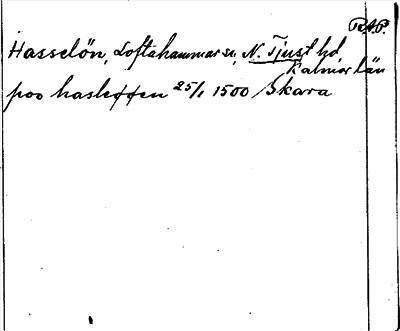 R.A.P.
Hasselön, Loftahammar sn, N. Tjust hd
Kalmar län
poo hasleøøen 25/1 1500 Skara